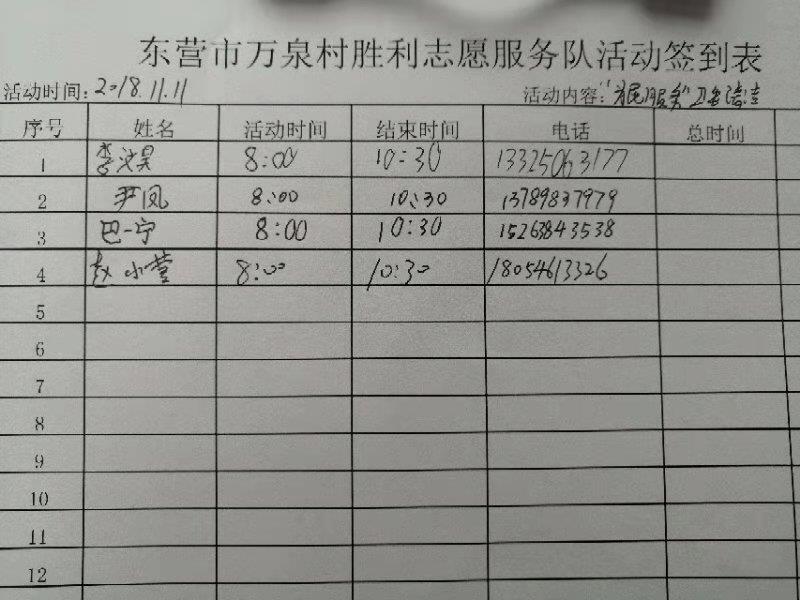 东营市万泉村胜利志愿服务队活动签到表
活动时间:2018.11.11 活动内容:"为民服务"卫生清洁
序号 姓名 活动时间 结束时间 电话 总时间
1 李汶昊 8:00 10:30 13325063177
2 尹凤 8:00 10:30 13789837979
3 巴一宁 8:00 10:30 15263843538
4 赵小莹 8:00 10:30 18054613326
5
6
7
8
9
10
11
12